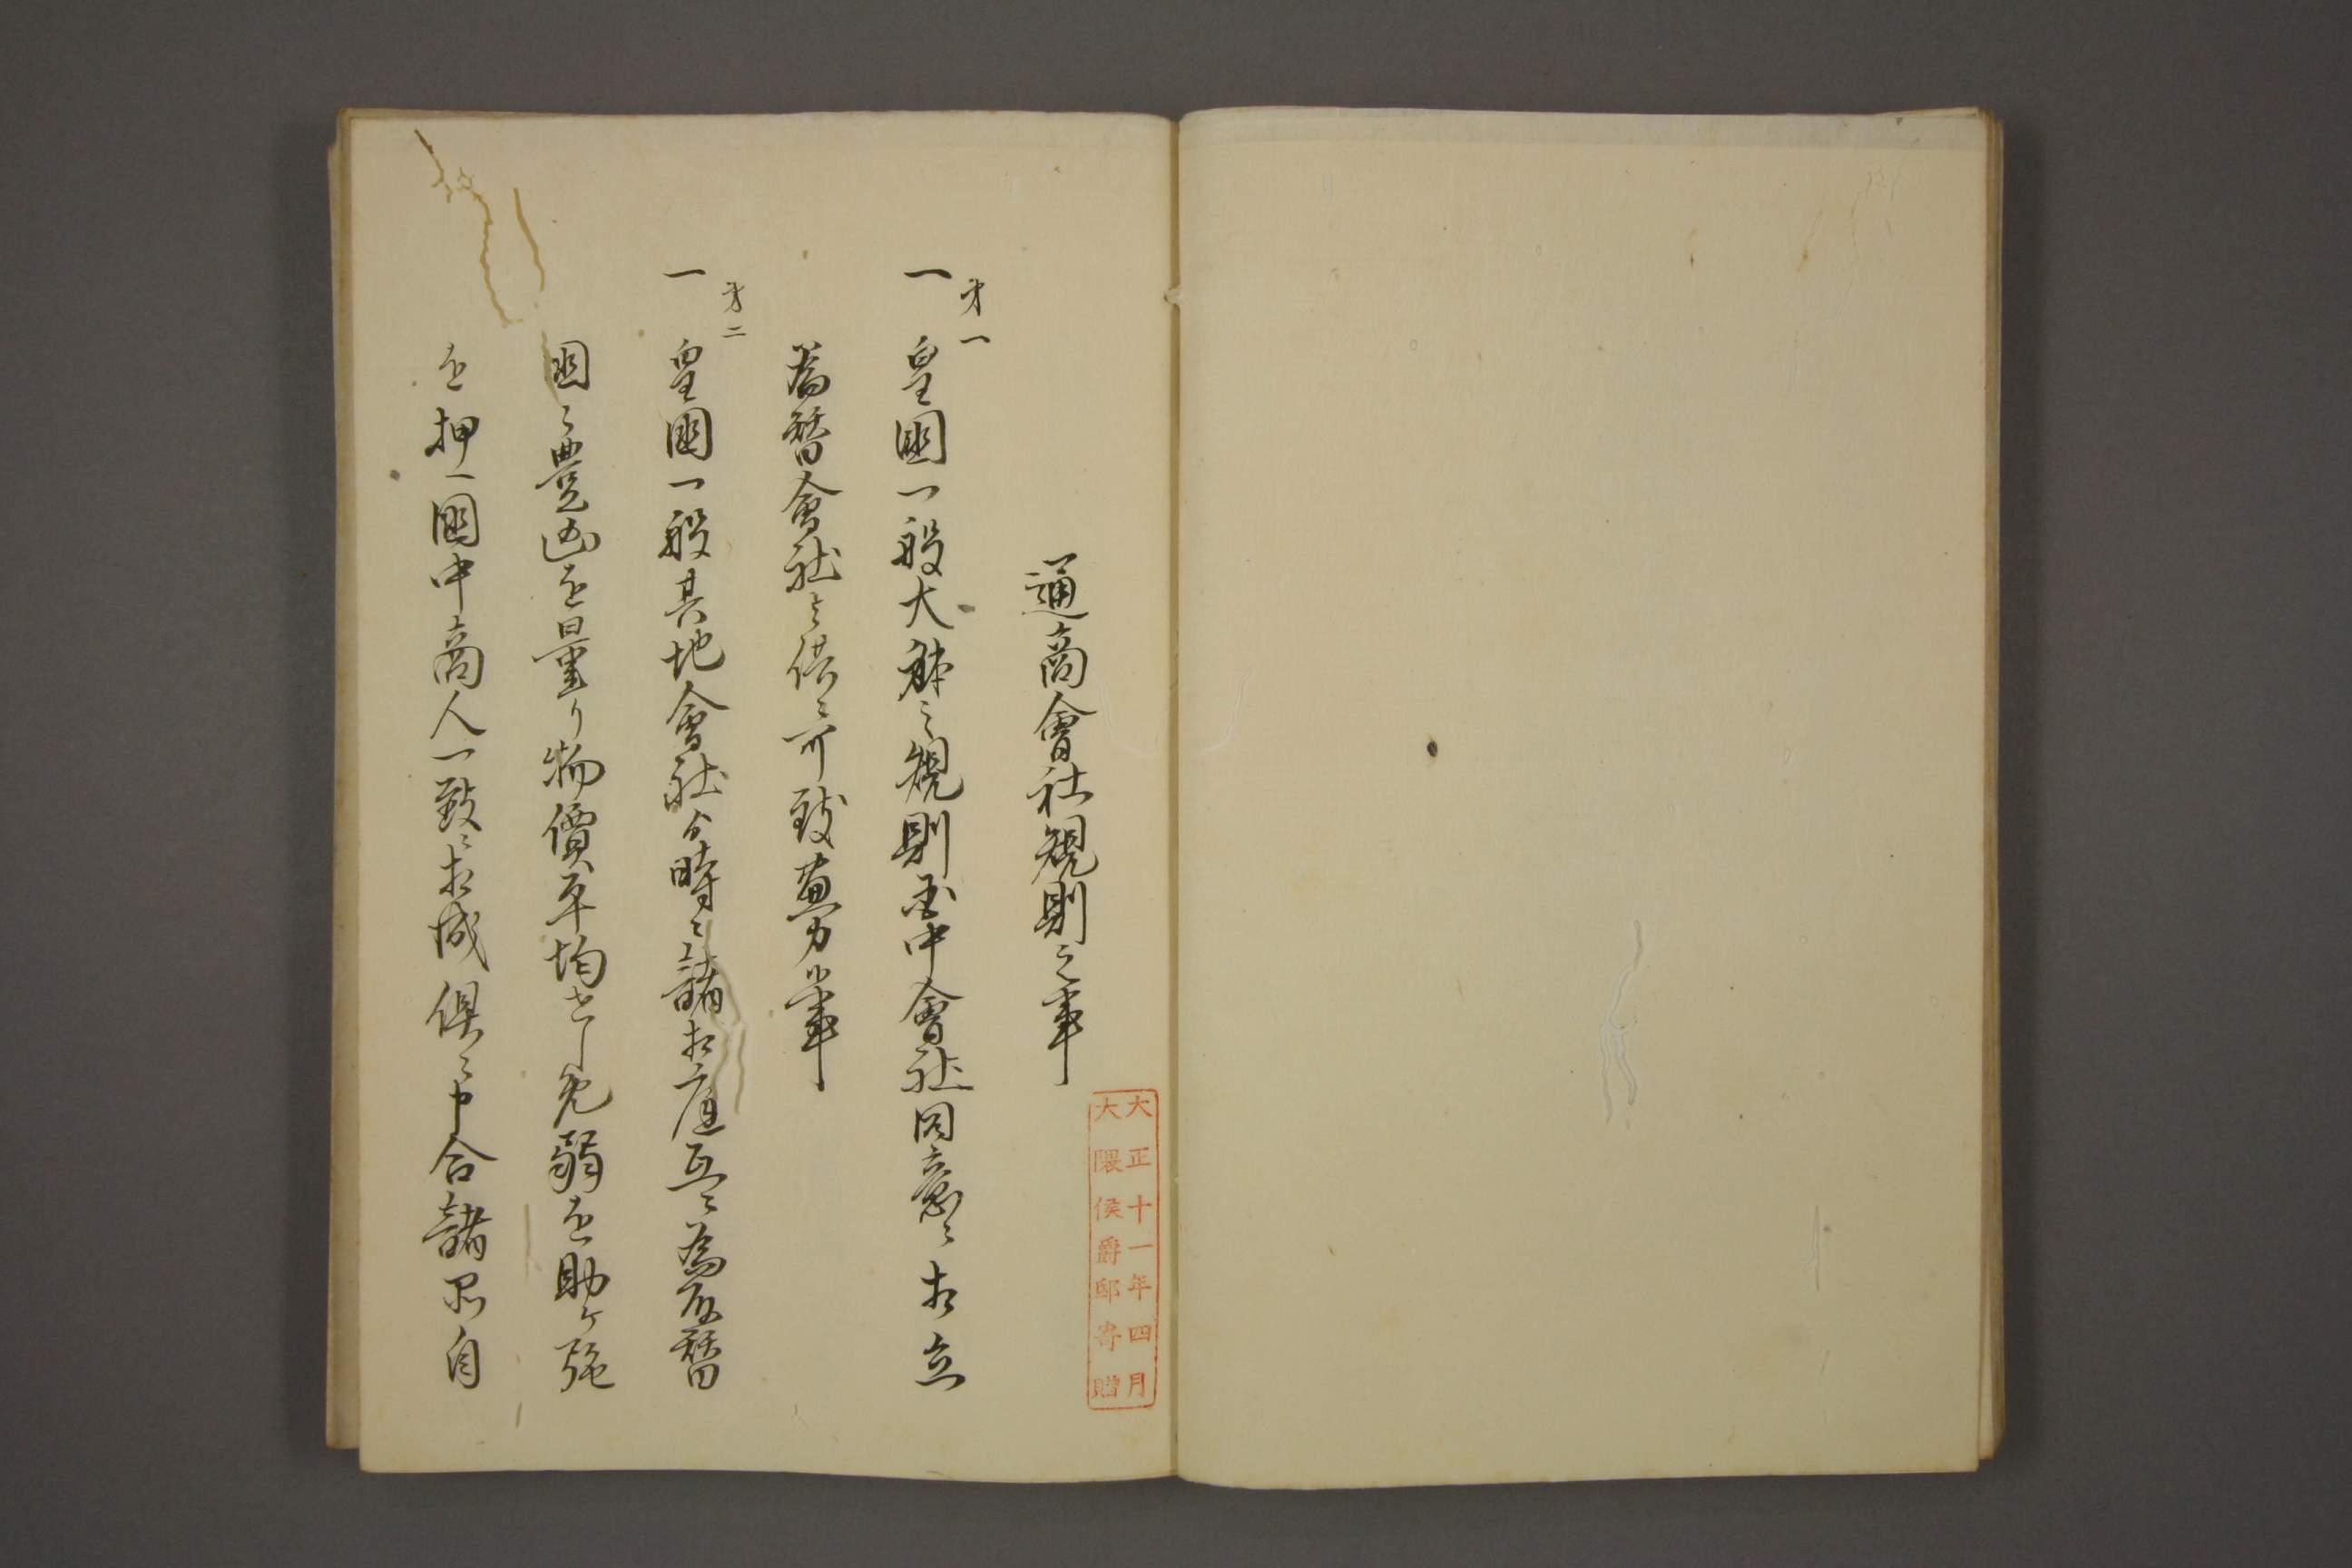 通商會社規則之事
第一
一 皇國一般大体之規則玉中會社同意ニ相立
為替會社と供ニ可致勤力候事
第二
一 皇國一般其地會社分時之諸相庭互ニ為取替
國々豊凶を量り物價平均せしめ弱を助ケ強
を押一國中商人一致ニ相成倶ニ申合諸品自
大正十一年四月
大隈侯爵邸寄贈